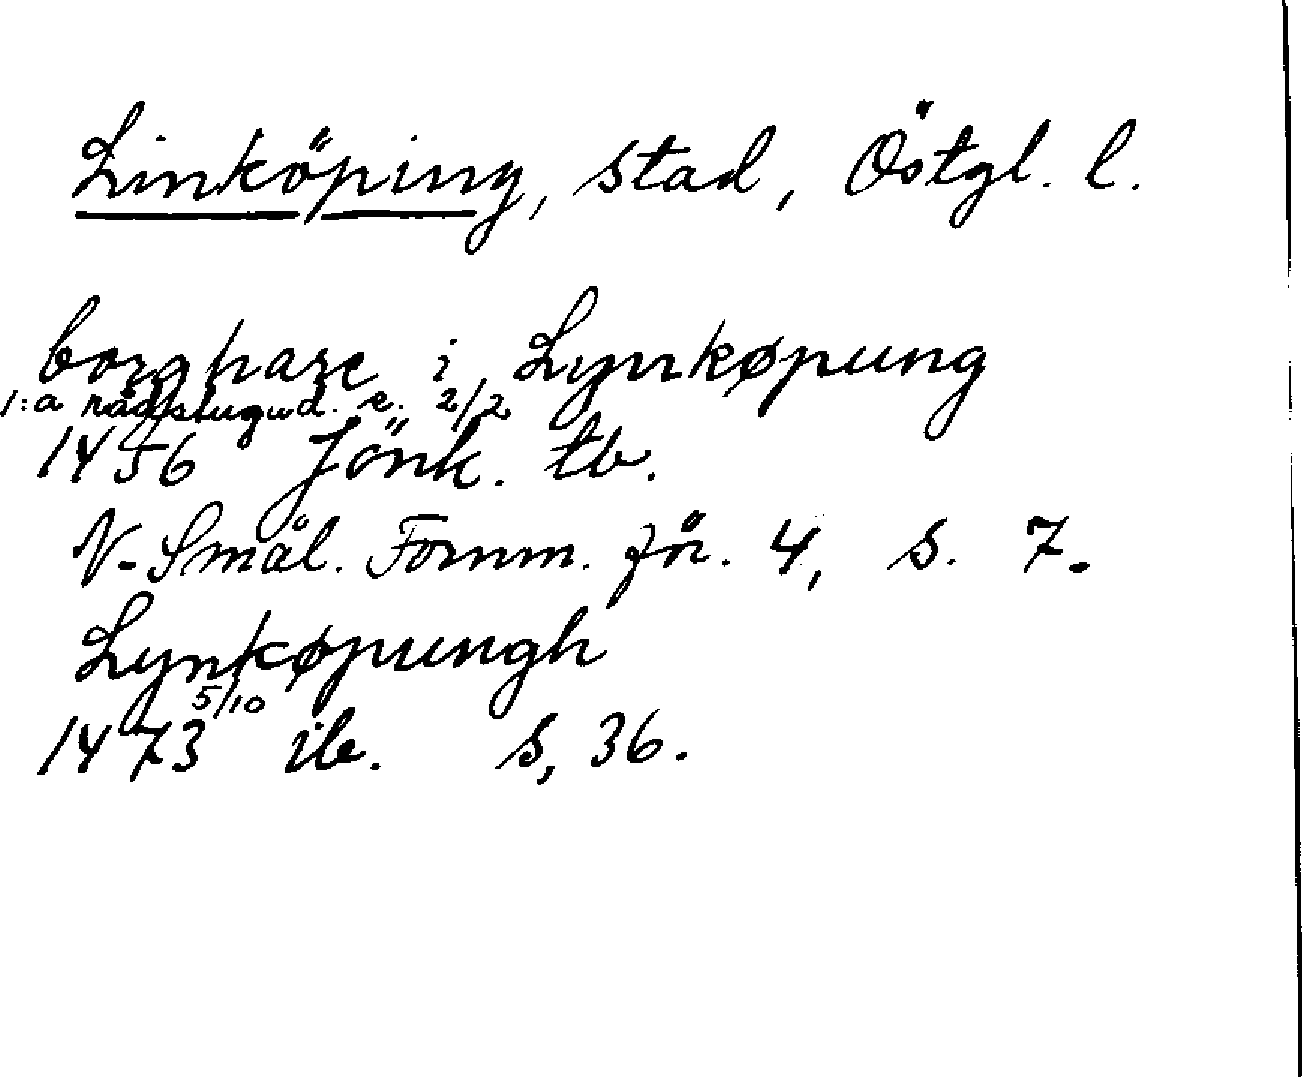 Linköping, stad, Östgl. l.
borghare i Lynkøpung
1:a rådstugud. e. 2/2
1456 Jönk. tb.
N. Smål. Fornm. för. 4, s. 7.
Lynkøpungh
5/10
1473 ib. s, 36.